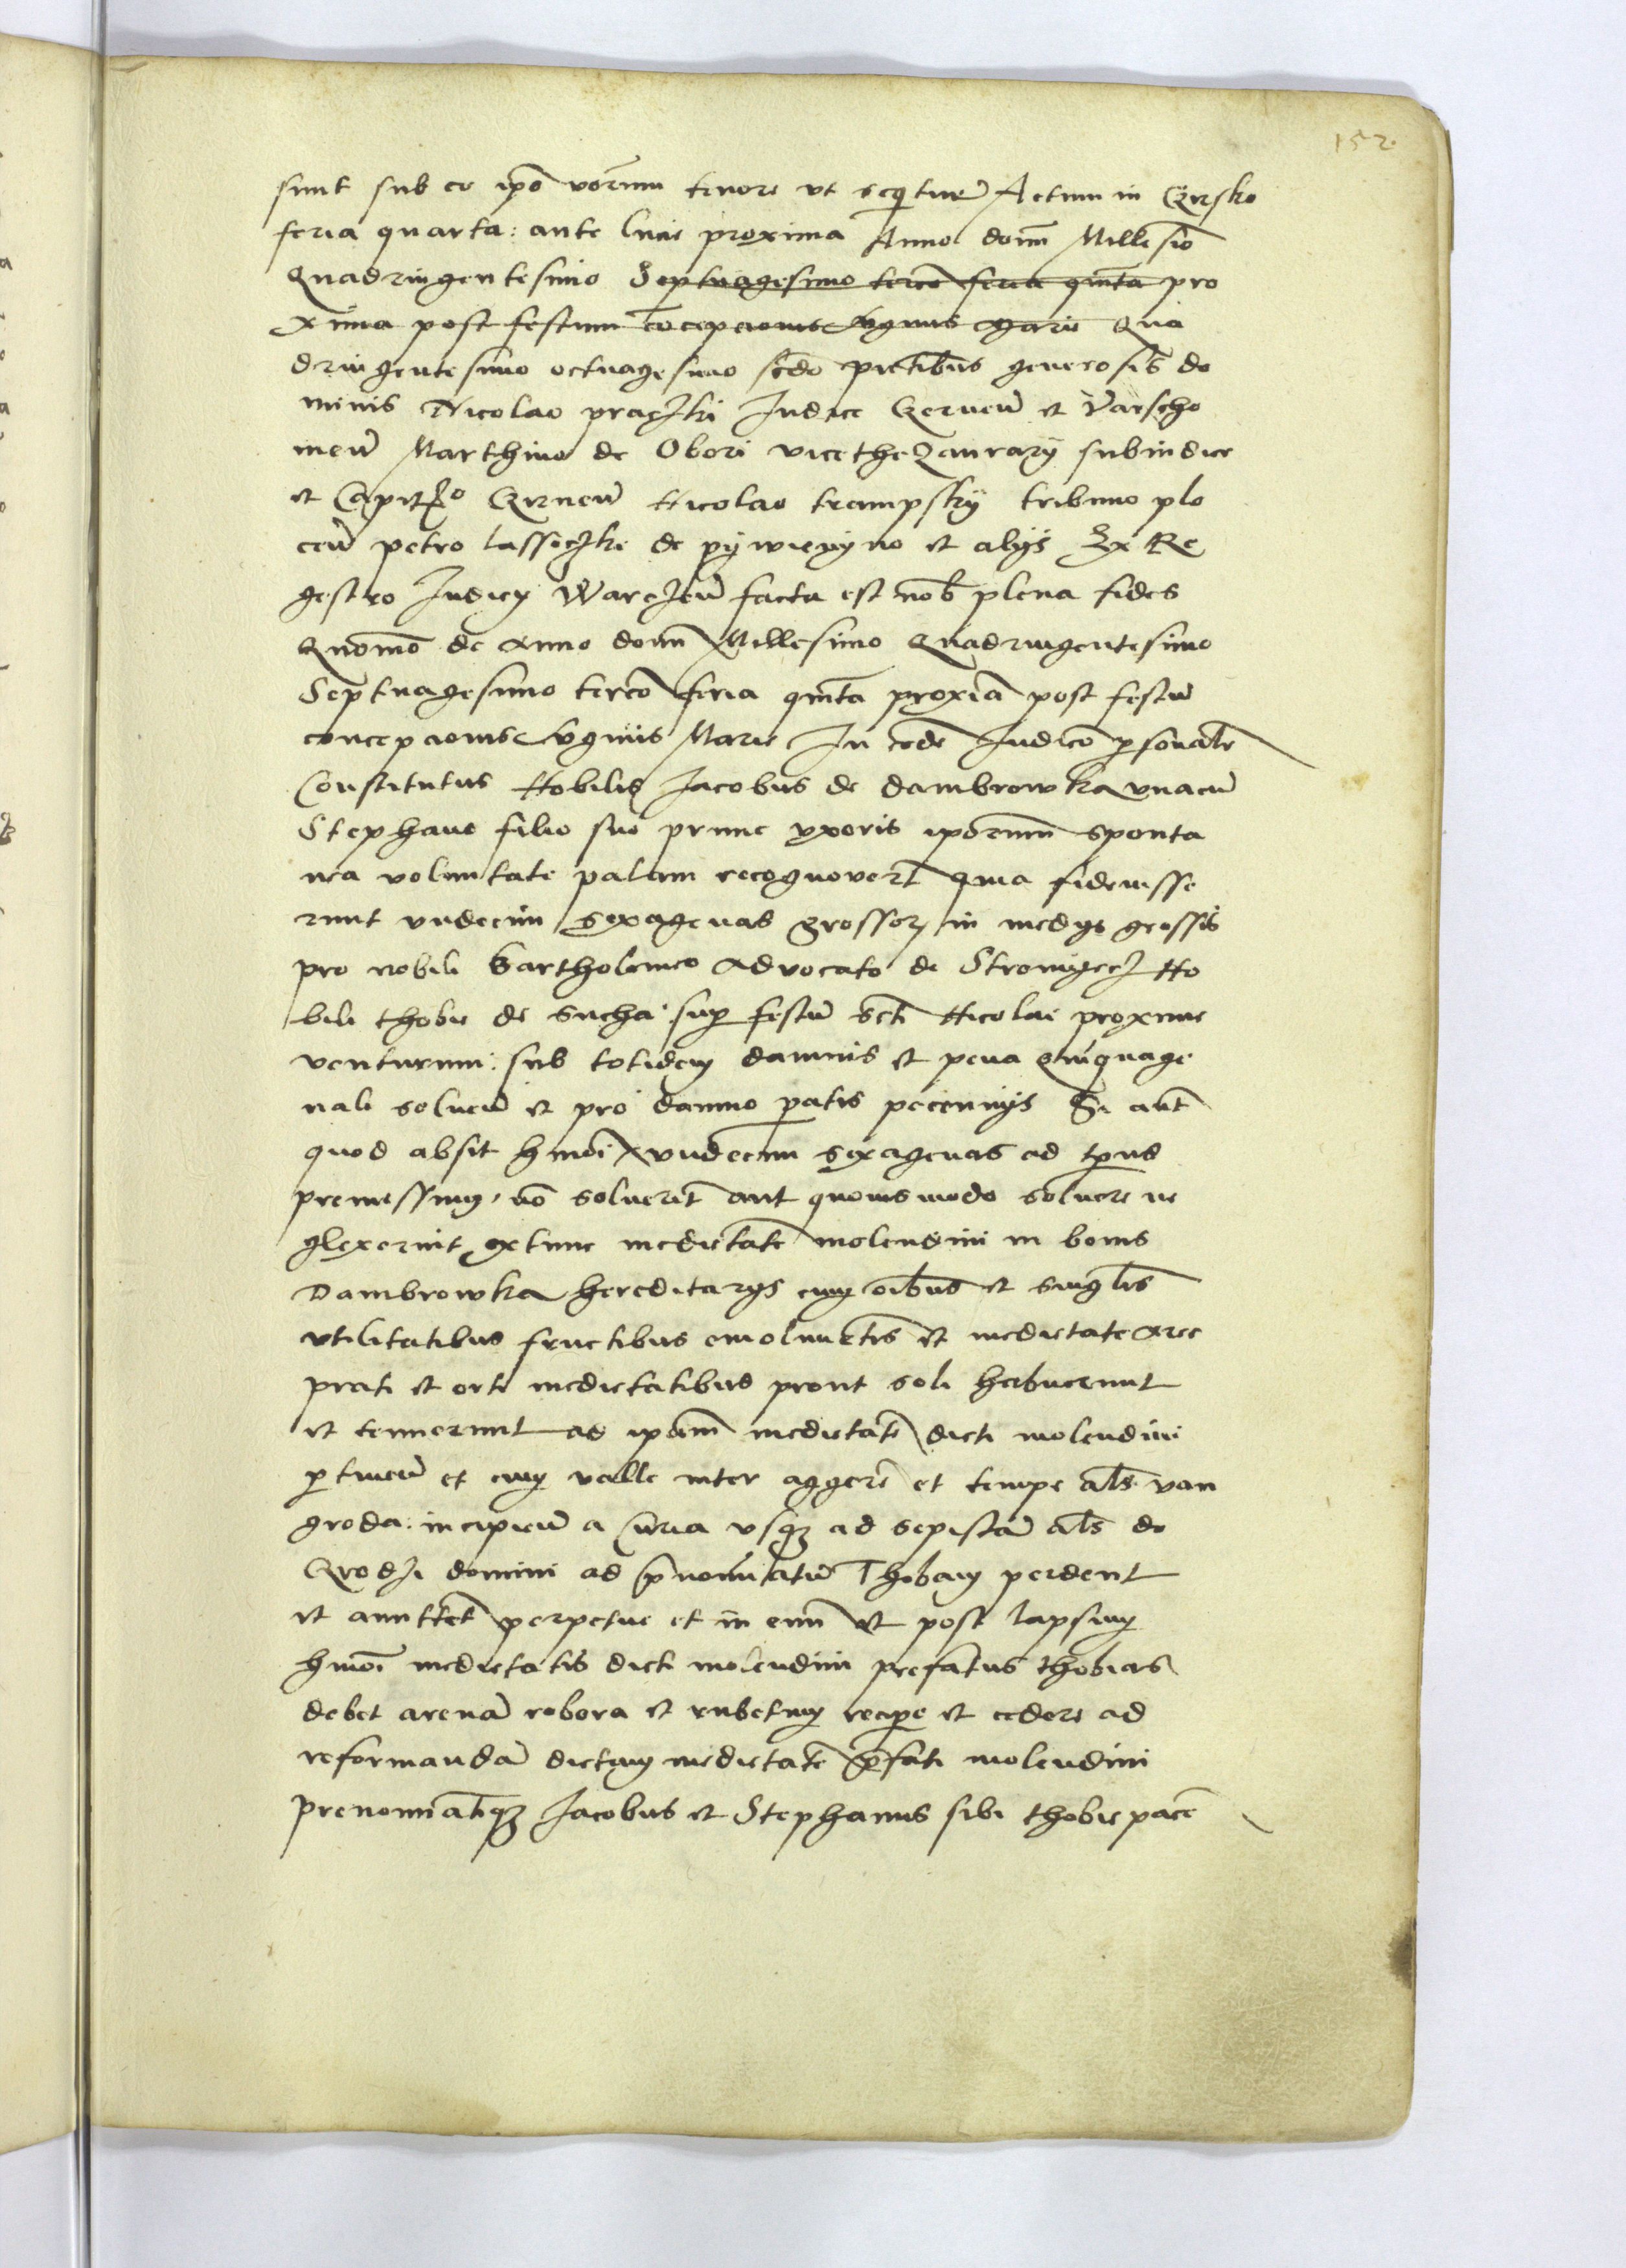 152
sunt sub eo ipō vōrum tenore vt seqitur Actum in Czirsko
feria quarta: ante lucie proxima Anno domi Millesio
Quadringentesimo Septuagesimo tercō feria qinta pro
xima post festum cōcepcionis vginis Marie Qua
dringentesimo octuagesimo scdo pntibus generosis do
minis Nicolao praczki Judice Czerneñ et Varscho
uieñ Marthino de Obori vicethezaurarÿ subiudice
et Capit° Czirneñ Nicolao trampskÿ tribuno plo
ceñ petro lassoczki de et alÿs Ex Re
gestro Judicÿ Warczieñ facta est nob plena fides
Quōmō de Anno domi Millesimo Quadringentesimo
Septuagesimo tercō feria qinta proxia post festū
concepcionis vginis Marie In eode Judicō psonalr
Constitutus Nobilis Jacobus de dambrowka vnacū
Stephano filio suo prime vxoris ipōrum sponta
nea voluntate palam recognovert quia fideiusse
runt vndecim sexagenas grossoꝝ in medys grossis
pro nobili Bartholomeo Advocato de Stromyecz No
bili thobie de Sucha sup festū scti Nicolai proxime
venturum: sub totidem damnis et pena Quiquage
nali solueñ et pro damno patis pecunnÿs Si aut
quod absit hmōi vndecim sexagenas ad tpus
premissum, nō soluerīt aut quouismodo soluere ne
glexerint extunc medietatē molendini in bonis
Dambrowka hereditarys cum oibus et singlis
vtilitatibus fructibus emolumētis et medietate Aree
prati et orti medietatibus prout soli habuerunt
et tenuerunt ad ipām medietatē dicti molendini
ptineñ et cum valle inter aggerē et tempe als van
groda: incipieñ a Curia vsqꝫ ad sepistā als do
Grodzi domini ad pnomiatū Thobiam perdent
et amittēt perpetue et in eum et post lapsum
hmōi medietatis dicti molendini prefatus thobias
debet arenā robora et rubetum recipe et cedere ad
reformandā dictam medietatē pfati molendini
prenomīatiqꝫ Jacobus et Stephanus sibi thobie pacē